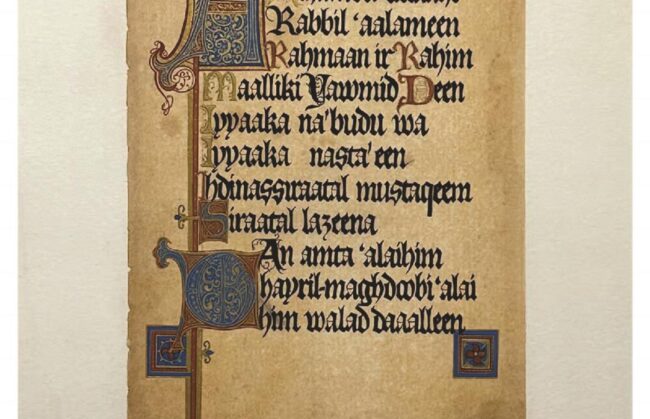 Rabbil 'aalameen
Rahmaan ir Rahim
Maalliki Yawmid Deen
Iyyaaka na'budu wa
Iyyaaka nasta'een
hdinassiraatal mustaqeem
Siraatal lazeena
An amta 'alaihim
Ghayril-maghdoobi 'alai
him walad daaalleen